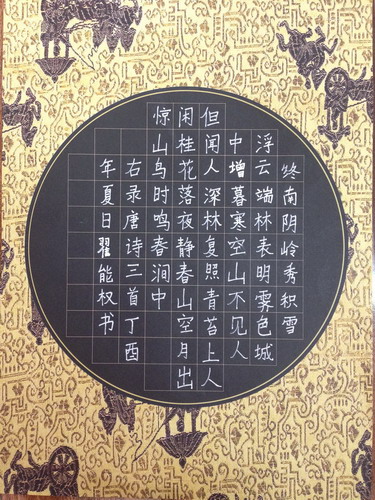 终南阴岭秀积雪
浮云端林表明霁色城
中增暮寒空山不见人
但闻人深林复照青苔上人
闲桂花落夜静春山空月出
惊山鸟时鸣春涧中
右录唐诗三首丁酉
年夏日翟能权书